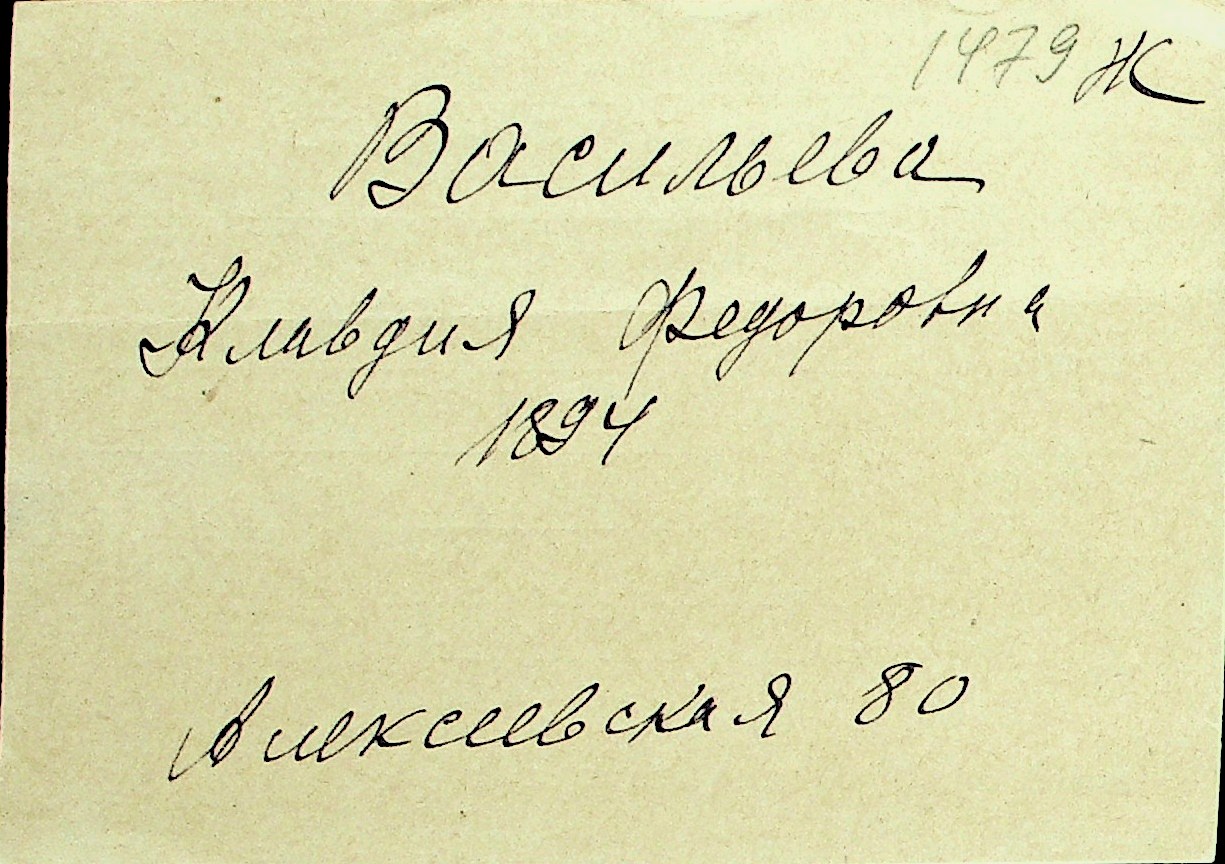 1479 Ж
Васильева
Клавдия Федоровна
1894
Алексеевская 80